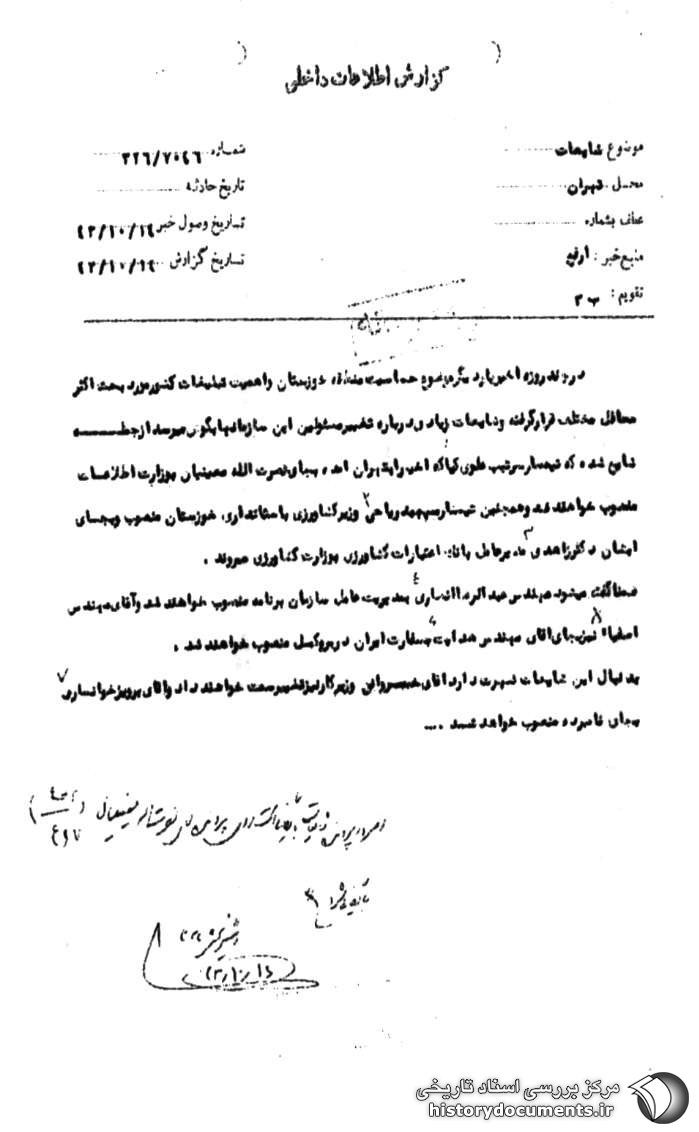 گزارش اطلاعات داخلی
موضوع شایعات
شماره ۳۲۶/۷۰۴۶
محل تهران
تاریخ حادثه
عطف بشماره
تاریخ وصول خبر ۴۳/۱۰/۱۴
منبع خبر: ارفع
تاریخ گزارش ۴۳/۱۰/۱۴
تقویم: ب ۳
در چند روزه اخیر بار دیگر موضوع حساسیت منطقه خوزستان و اهمیت تبلیغات کشور مورد بحث اکثر
محافل مختلف قرار گرفته و شایعات زیادی درباره تغییر مسئولین این سازمانها بگوش میرسد از جمله
شایع شده که تیمسار سرتیپ علوی کیا که اخیرا بتهران امده بجای نصرت الله معینیان بوزارت اطلاعات
منصوب خواهند شد و همچنین تیمسار سپهبد ریاحی ۲ وزیر کشاورزی باستانداری خوزستان منصوب و بجای
ایشان دکتر زاهدی ۳ مدیر عامل بانک اعتبارات کشاورزی بوزارت کشاورزی میروند .
ضمنا گفته میشود مهندس عبدالرضا انصاری ۴ بمدیریت عامل سازمان برنامه منصوب خواهند شد و آقای مهندس
اصفیاء نیز بجای اقای مهندس هدایت بسفارت ایران در بروکسل منصوب خواهند شد .
بدنبال این شایعات شهرت دارد اقای خسروانی وزیر کار نیز تغییر سمت خواهند داد و اقای پرویز خوانساری ۷
بجای نامبرده منصوب خواهد شد ....
۴۳/۱۰/۱۴
مرکز بررسی اسناد تاریخی
historydocuments.ir